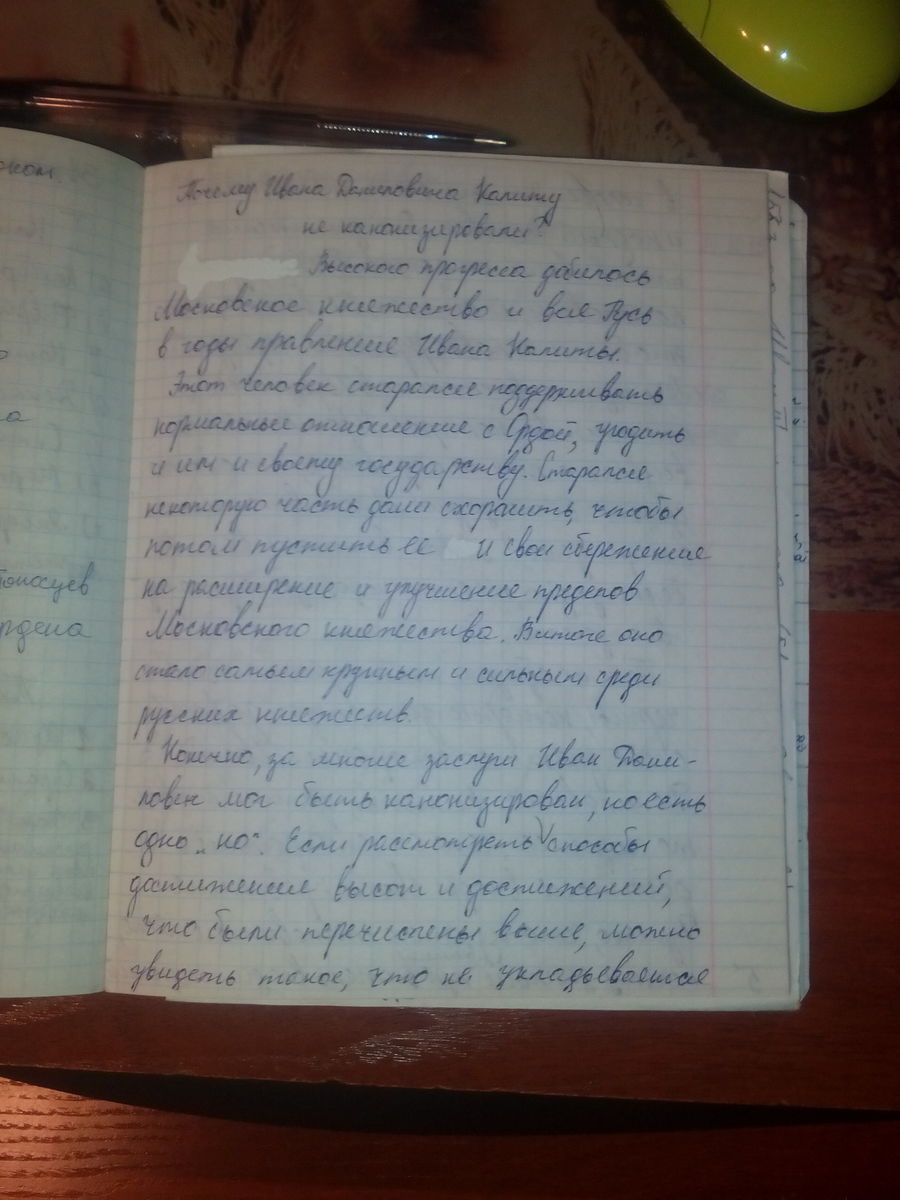 оном.
а
Топосцев
рдена
Почему Ивана Даниловича Калиту
не канонизировали?
Высокого прогресса добилось
Московское княжество и вся Русь
в годы правления Ивана Калиты.
Этот человек старался поддерживать
нормальные отношение с Ордой, угодить
и им и своему государству. Старался
некоторую часть дани схоранить, чтобы
потом пустить ее и свои сбережение
на расширение и улучшение пределов
Московского княжества. Витоге оно
стало самым крупным и сильным среди
русских княжеств.
Конечно, за многие заслуги Иван Дани-
лович мог быть канонизирован, но есть
одно „но“. Если рассмотреть способы
достижения высот и достижений,
что были перечислены выше, можно
увидеть такое, что не укладывается